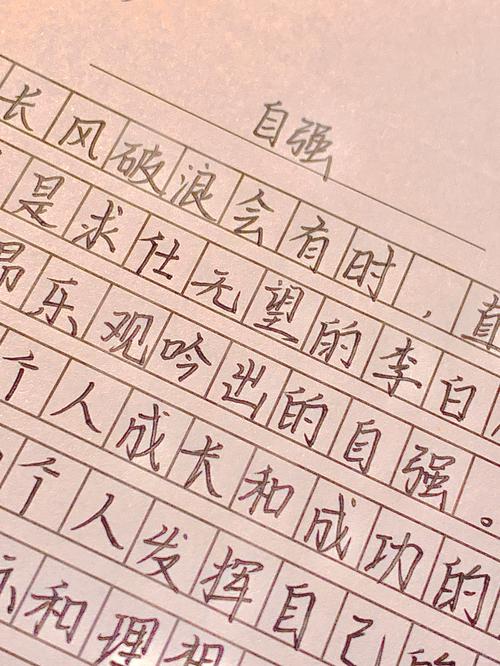 自强
长风破浪会有时，直
是求仕无望的李白
昂乐观吟出的自强。
个人成长和成功的
个人发挥自己的
标和理想